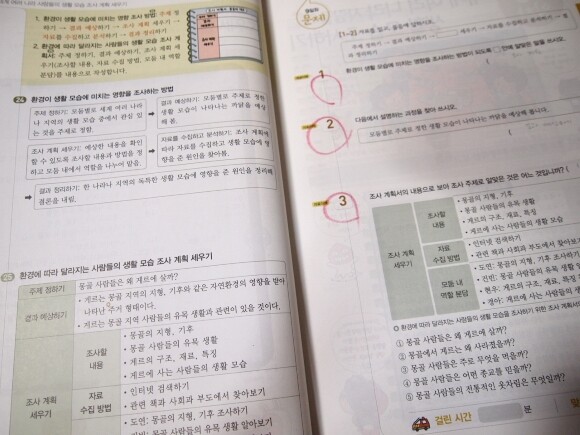 1. 환경이 생활 모습에 미치는 영향 조사 방법: 주제 정
하기 → 결과 예상하기 → 조사 계획 세우기 →
자료를 수집하고 분석하기 → 결과 정리하기
2. 환경에 따라 달라지는 사람들의 생활 모습 조사 계
획서: 주제 정하기, 결과 예상하기, 조사 계획 세
우기(조사할 내용, 자료 수집 방법, 모둠 내 역할
분담)를 내용으로 작성합니다.
24 환경이 생활 모습에 미치는 영향을 조사하는 방법
주제 정하기: 모둠별로 세계 여러 나라
나 지역의 생활 모습 중에서 관심 있
는 것을 주제로 정함.
결과 예상하기: 모둠별로 주제로 정한
생활 모습이 나타나는 까닭을 예상
해 봄.
조사 계획 세우기: 예상한 내용을 확인
할 수 있도록 조사할 내용과 방법을 정
하고 모둠 내에서 역할을 나누어 맡음.
자료를 수집하고 분석하기: 조사 계획에
따라 자료를 수집하고 생활 모습에 영
향을 준 원인을 찾아봄.
결과 정리하기: 한 나라나 지역의 독특한 생활 모습에 영향을 준 원인을 정리해
결론을 내림.
25 환경에 따라 달라지는 사람들의 생활 모습 조사 계획 세우기
주제 정하기
몽골 사람들은 왜 게르에 살까?
결과 예상하기
• 게르는 몽골 지역의 지형, 기후와 같은 자연환경의 영향을 받아
나타난 주거 형태이다.
• 게르는 몽골 지역 사람들의 유목 생활과 관련이 있을 것이다.
조사 계획
세우기
조사할
내용
• 몽골의 지형, 기후
• 몽골 사람들의 유목 생활
• 게르의 구조, 재료, 특징
• 게르에 사는 사람들의 생활 모습
자료
수집 방법
• 인터넷 검색하기
• 관련 책과 사회과 부도에서 찾아보기
• 도연: 몽골의 지형, 기후 조사하기
몽골 사람들의 유목 생활 알아보기
[1~2] 자료를 읽고, 물음에 답하시오.
1
환경이 생활 모습에 미치는 영향을 조사하는 방법이 되도록 안에 알맞은 말을 쓰시오.
2
다음에서 설명하는 과정을 찾아 쓰시오.
모둠별로 주제로 정한 생활 모습이 나타나는 까닭을 예상해 봅니다.
3
조사 계획서의 내용으로 보아 조사 주제로 알맞은 것은 어느 것입니까? (
조사 계획
세우기
조사할
내용
• 몽골의 지형, 기후
• 몽골 사람들의 유목 생활
• 게르의 구조, 재료, 특징
• 게르에 사는 사람들의 생활 모
자료
수집 방법
• 인터넷 검색하기
• 관련 책과 사회과 부도에서 찾아
모둠 내
역할 분담
• 도연: 몽골의 지형, 기후 조사하
• 진민: 몽골 사람들의 유목 생활
• 현우: 게르의 구조, 재료, 특징
• 경아: 게르에 사는 사람들의 생
환경에 따라 달라지는 사람들의 생활 모습을 조사하기 위한 조사 계획서
① 몽골 사람들은 왜 게르에 살까?
② 몽골에서 게르는 왜 사라졌을까?
③ 몽골 사람들은 주로 무엇을 먹을까?
④ 몽골 사람들은 어떤 종교를 믿을까?
⑤ 몽골 사람들의 전통적인 옷차림은 무엇일까?
걸린 시간 분